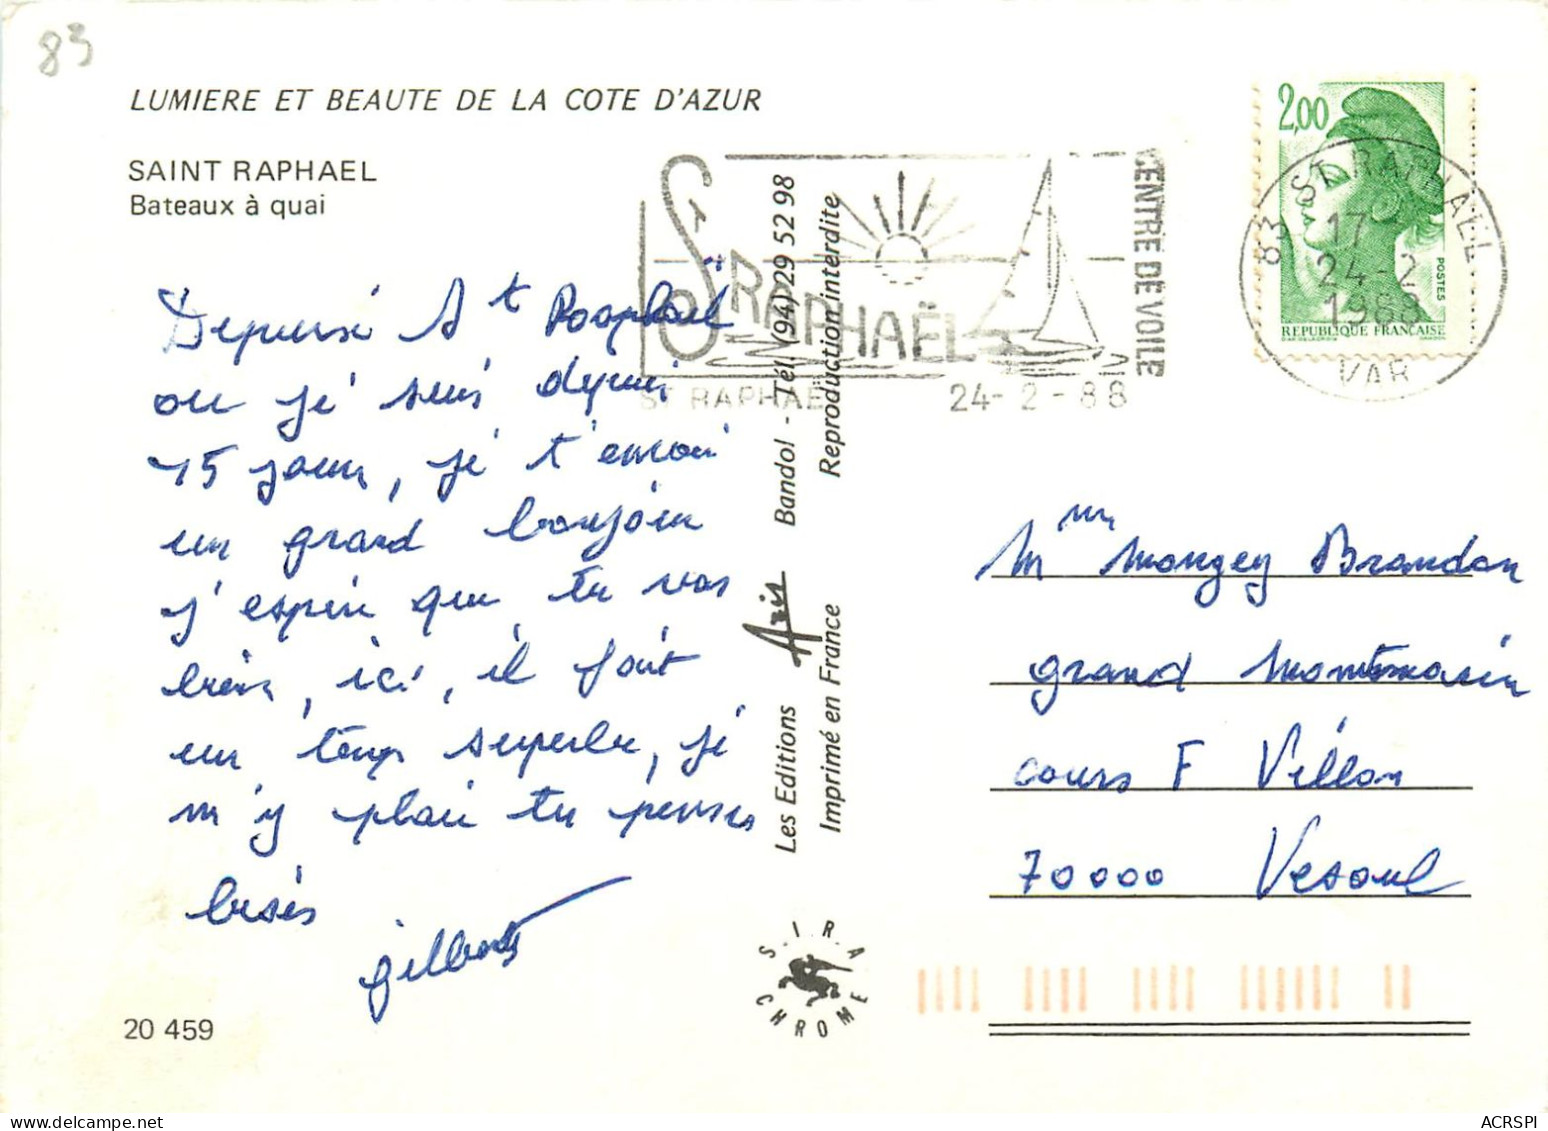 83
LUMIERE ET BEAUTE DE LA COTE D'AZUR
SAINT RAPHAEL
Bateaux à quai
Depuis St Raaphael
ou je suis depuis
15 jours, je t'envoi
un grand bonjour
j'espère que tu vas
bien, ici, il fait
un temps superbe, je
m'y plais tu penses
bises
gilberte
20 459
Les Editions Aris Bandol - Tél. (94) 29 52 98
Imprimé en France Reproduction interdite
S.I.R.A
CHROME
ST RAPHAËL
CENTRE DE VOILE
ST RAPHAEL 24-2-88
2,00
POSTES
REPUBLIQUE FRANÇAISE
83 ST RAPHAEL
17
24-2
1988
VAR
Mme Mongey Brandon
grand Montmarin
cours F Villon
70000 Vesoul
ACRSPI